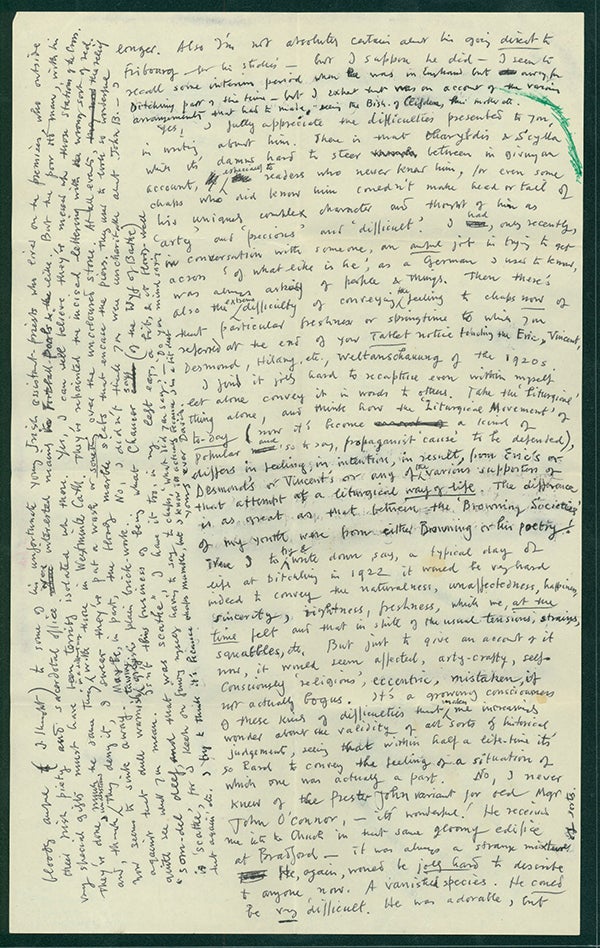 longer. Also I'm not absolutely certain about his going direct to
Fribourg for his studies — but I suppose he did — I seem to
recall some interim period when he was in England but away for
Ditchling part of the time — but I rather think that was on account of the various
arrangements that had to made, seeing the Bish. of Clifton, this matter etc.
Yes, I fully appreciate the difficulties presented to you,
in writing about him. There is that Charybdis & Scylla
which it's damns hard to steer between in giving an
account, especially to readers who never knew him, for even some
chaps who did know him couldn't make head or tail of
his uniquely complex character and thought of him as
'artey' and 'precious' and 'difficult'. I had, only recently,
in conversation with someone, an awful job in trying to get
across 'of what like is he', as a German I used to know,
was always asking of people & things. Then there's
also the extreme difficulty of conveying the feeling to chaps now of
that particular freshness or springtime to which you
referred at the end of your Tablet notice touching the Eric, Vincent,
Desmond, Hilary, etc., Weltanschauung of the 1920s
I find it jolly hard to recapture even within myself
let alone convey it in words to others. Take the 'Liturgical'
thing alone, and think how the 'Liturgical Movement' of
to-day (now it's become a kind of
popular and so to say, propagandist 'cause' to be defended),
differs in feeling, in intention, in result, from Eric's or
Desmond's or Vincent's or any of the various supporters of
that attempt at a liturgical way of life. The difference
is as great as that between the 'Browning Societies'
of my youth were from either Browning or his poetry!
Were I to try & write down say, a typical day of
life at Ditchling in 1922 it would be very hard
indeed to convey the naturalness, unaffectedness, happiness,
sincerity, rightness, freshness, which we, at the
time felt and that in spite of the usual tensions, strains,
squabbles, etc. But just to give an account of it
now, it would seem affected, arty-crafty, self-
consciously 'religious', eccentric, mistaken, if
not actually bogus. It's a growing consciousness
of these kinds of difficulties that makes me increasingly
wonder about the validity of all sorts of historical
judgements, seeing that within half a life-time it's
so hard to convey the feeling of a situation of
which one was actually a part. No, I never
knew of the Prester John variant for old Mgr
John O'Connor, — it's wonderful! He received
me into the Church in that same gloomy edifice
at Bradford — it was always a strange mixture of sorts.
He, again, would be jolly hard to describe
to anyone now. A vanished species. He could
be very difficult. He was adorable, but
bloody awful (I thought) to some of his unfortunate young Irish assistant priests who erred on the premises, who outside
their Irish piety and sacerdotal office were interested mainly in football pools & the like. But they, for its many, with his
very special gifts must have been terribly isolated in there. Yes, I can well believe they've messed up those stations of the Cross.
They've done much the same thing with those in Westminster Cath. They've repainted the incised lettering with the wrong sort of red,
and, I think (they deny it, I swear they've put a wash, or something over the uncoloured stone. At all events the relief
now seems to sink away. Maybe, in part, the bloody marble slabs that encase the piers. They used to look so wonderful
against that dull warmish-greyish plain brick-work. No, I didn't think you were uncharitable about John B. — I
quite see what you mean. Isn't this business of being what Chaucer says (of the Wyf of Bathe)
'som-del deef, and that was scathe'. I have it too in my left ear, a bit, & it bloody well
is 'scathe', for I keep on finding myself having to say to chaps, 'what did you say? — Do you mind saying
that again' etc. I try to think it's because chaps mumble but I know it's actually because I'm a bit deef.
yours ever David